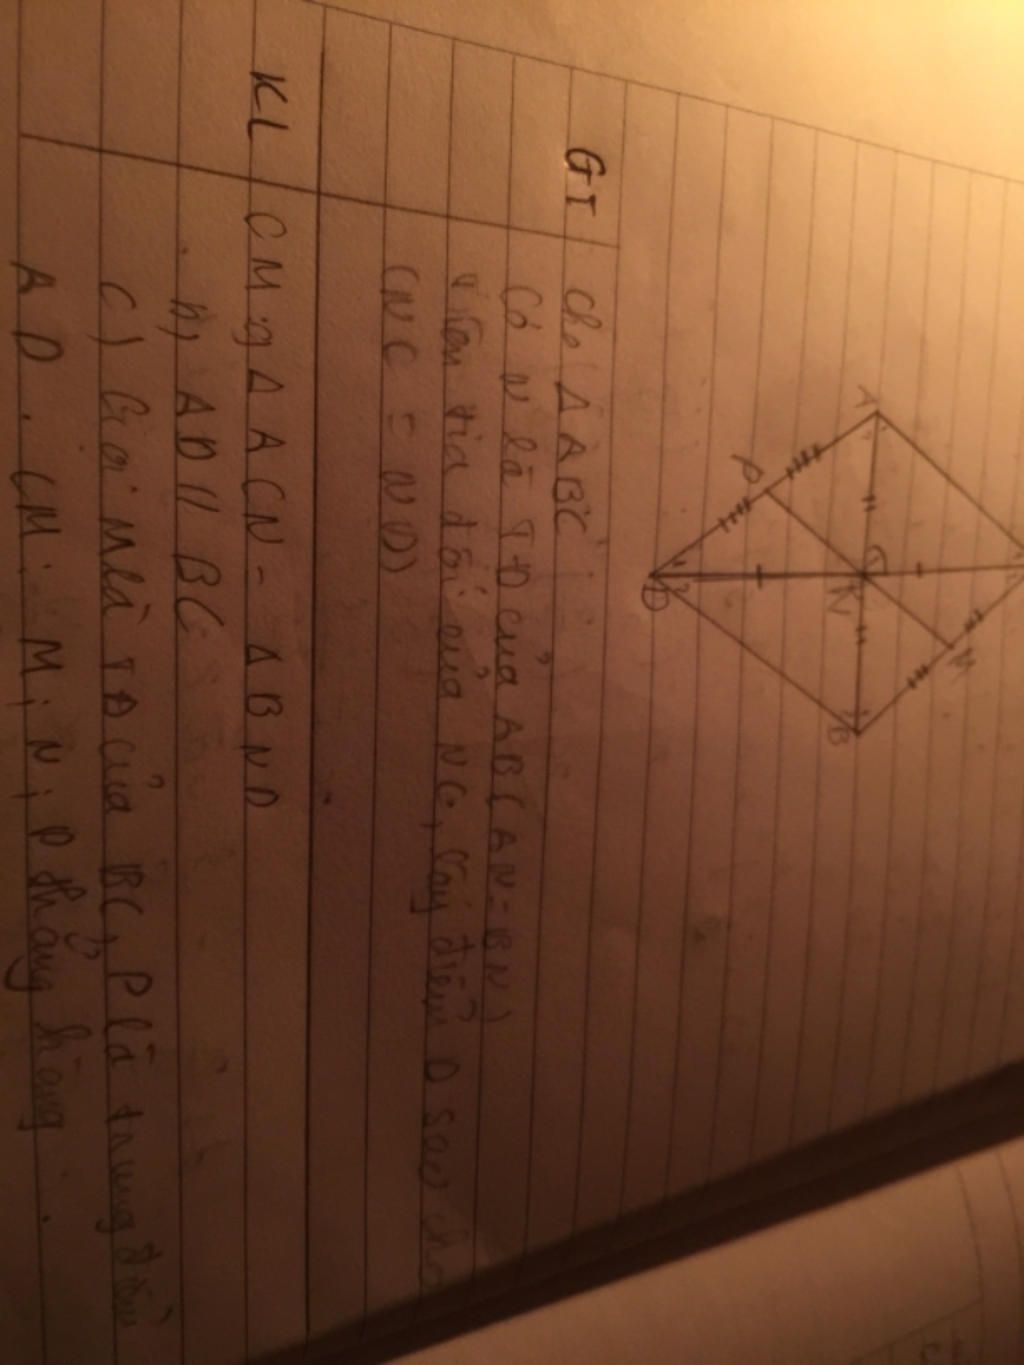 A
P
D
N
M
B
GT cho Δ ABC
Có N là TĐ của AB (AN = BN)
trên tia đối của NC, lấy điểm D sao cho
(NC = ND)
KL CM: a, Δ ACN = Δ BND
b, AD // BC
c) Gọi M là TĐ của BC, P là trung điểm
AD. CM: M; N; P thẳng hàng.